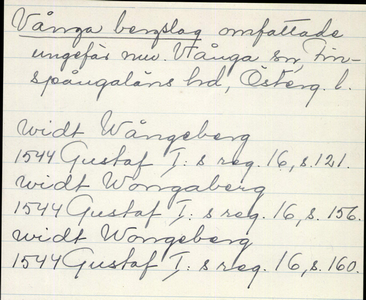 Vånga bergslag omfattade
ungefär nuv. Vånga sn, Fin-
spångaläns hd, Österg. l.
widt Wångeberg
1544 Gustaf I: s reg. 16, s. 121.
widt Wongaberg
1544 Gustaf I: s reg. 16, s. 156.
widt Wongeberg
1544 Gustaf I: s reg. 16, s. 160.